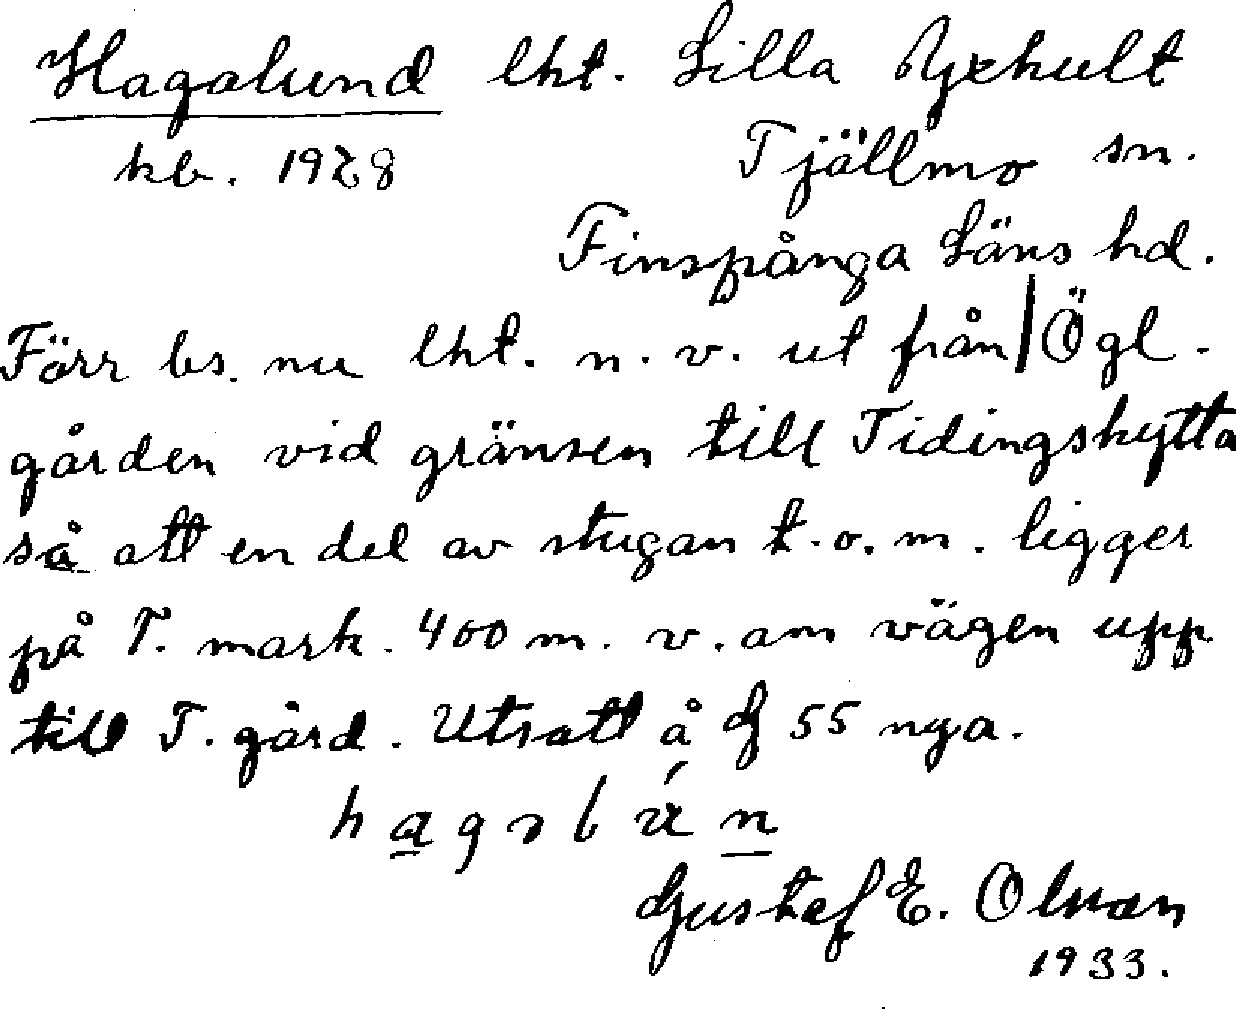 Hagalund lht. Lilla Yxhult
kb. 1928 Tjällmo sn.
Finspånga Läns hd.
Förr bs. nu lht. n. v. ut från | Ögl.
gården vid gränsen till Tidingshytta
så att en del av stugan t.o.m. ligger
på T. mark. 400 m. v. om vägen upp
till T. gård. Utsatt å G 55 nya.
h a g a l ú n
Gustaf E. Olsson
1933.